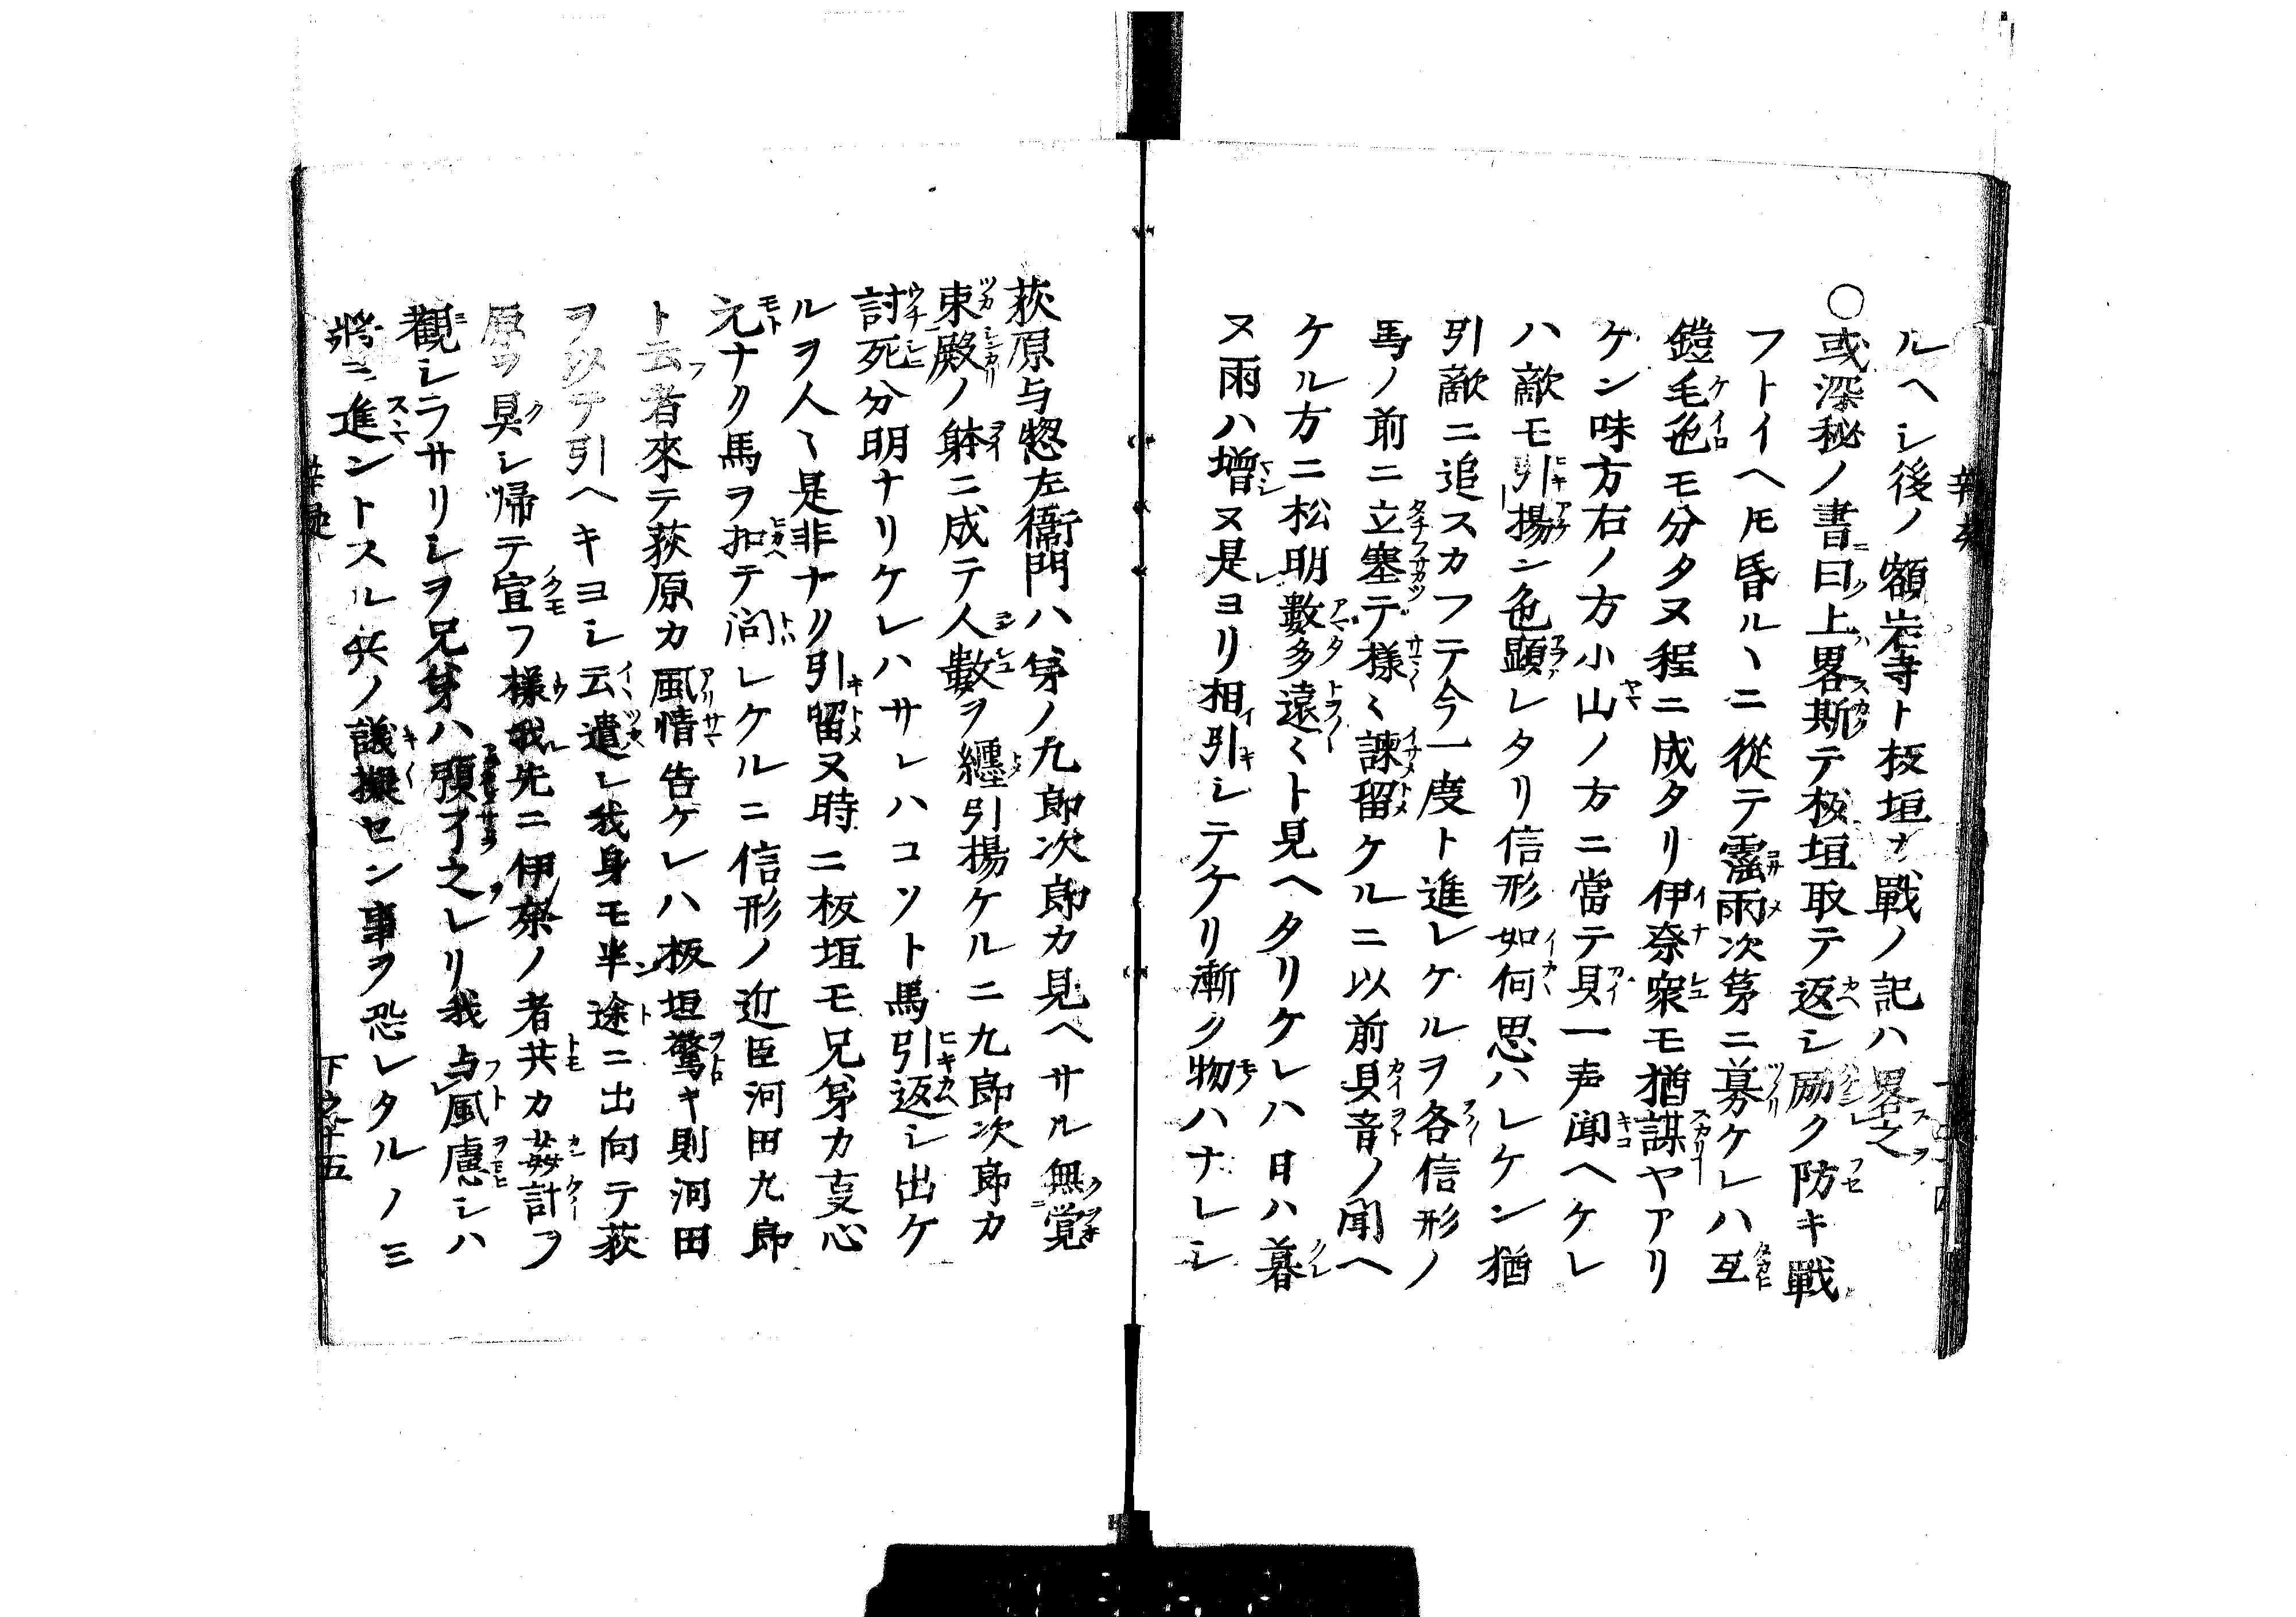 ルヘシ後ノ額岩寺ト板垣カ戰ノ記ハ畧之
○或深秘ノ書曰上畧斯テ板垣取テ返シ励ク防キ戰
フトイヘ𪜈昏ルヽニ從テ霪雨次第ニ募ケレハ互
鎧毛色モ分タヌ程ニ成タリ伊奈衆モ猶謀ヤアリ
ケン味方右ノ方小山ノ方ニ當テ貝一声聞ヘケレ
ハ敵モ引揚ン色顕レタリ信形如何思ハレケン猶
引敵ニ追スカフテ今一度ト進レケルヲ各信形ノ
馬ノ前ニ立塞テ様〻諫留ケルニ以前貝音ノ聞ヘ
ケル方ニ松明數多遠〻ト見ヘタリケレハ日ハ暮
ヌ雨ハ增ヌ是ヨリ相引シテケリ漸ク物ハナレシ
荻原与惣左衞門ハ弟ノ九郎次郎カ見ヘサル無覚
束殿ノ躰ニ成テ人數ヲ纏引揚ケルニ九郎次郎カ
討死分明ナリケレハサレハコソト馬引返シ出ケ
ルヲ人〻是非ナク引留ヌ時ニ板垣モ兄弟カ支心
元ナク馬ヲ扣テ問レケルニ信形ノ近臣河田九郎
ト云者來テ荻原カ風情告ケレハ板垣驚キ則河田
ヲ以テ引ヘキヨシ云遣シ我身モ半途ニ出向テ荻
原ヲ具シ帰テ宣フ様我先ニ伊奈ノ者共カ姦計ヲ
觀シラサリシヲ兄弟ハ預才之レリ我与風慮シハ
將ニ進ントスル兵ノ議擬セン事ヲ恐レタルノ三
下之十五